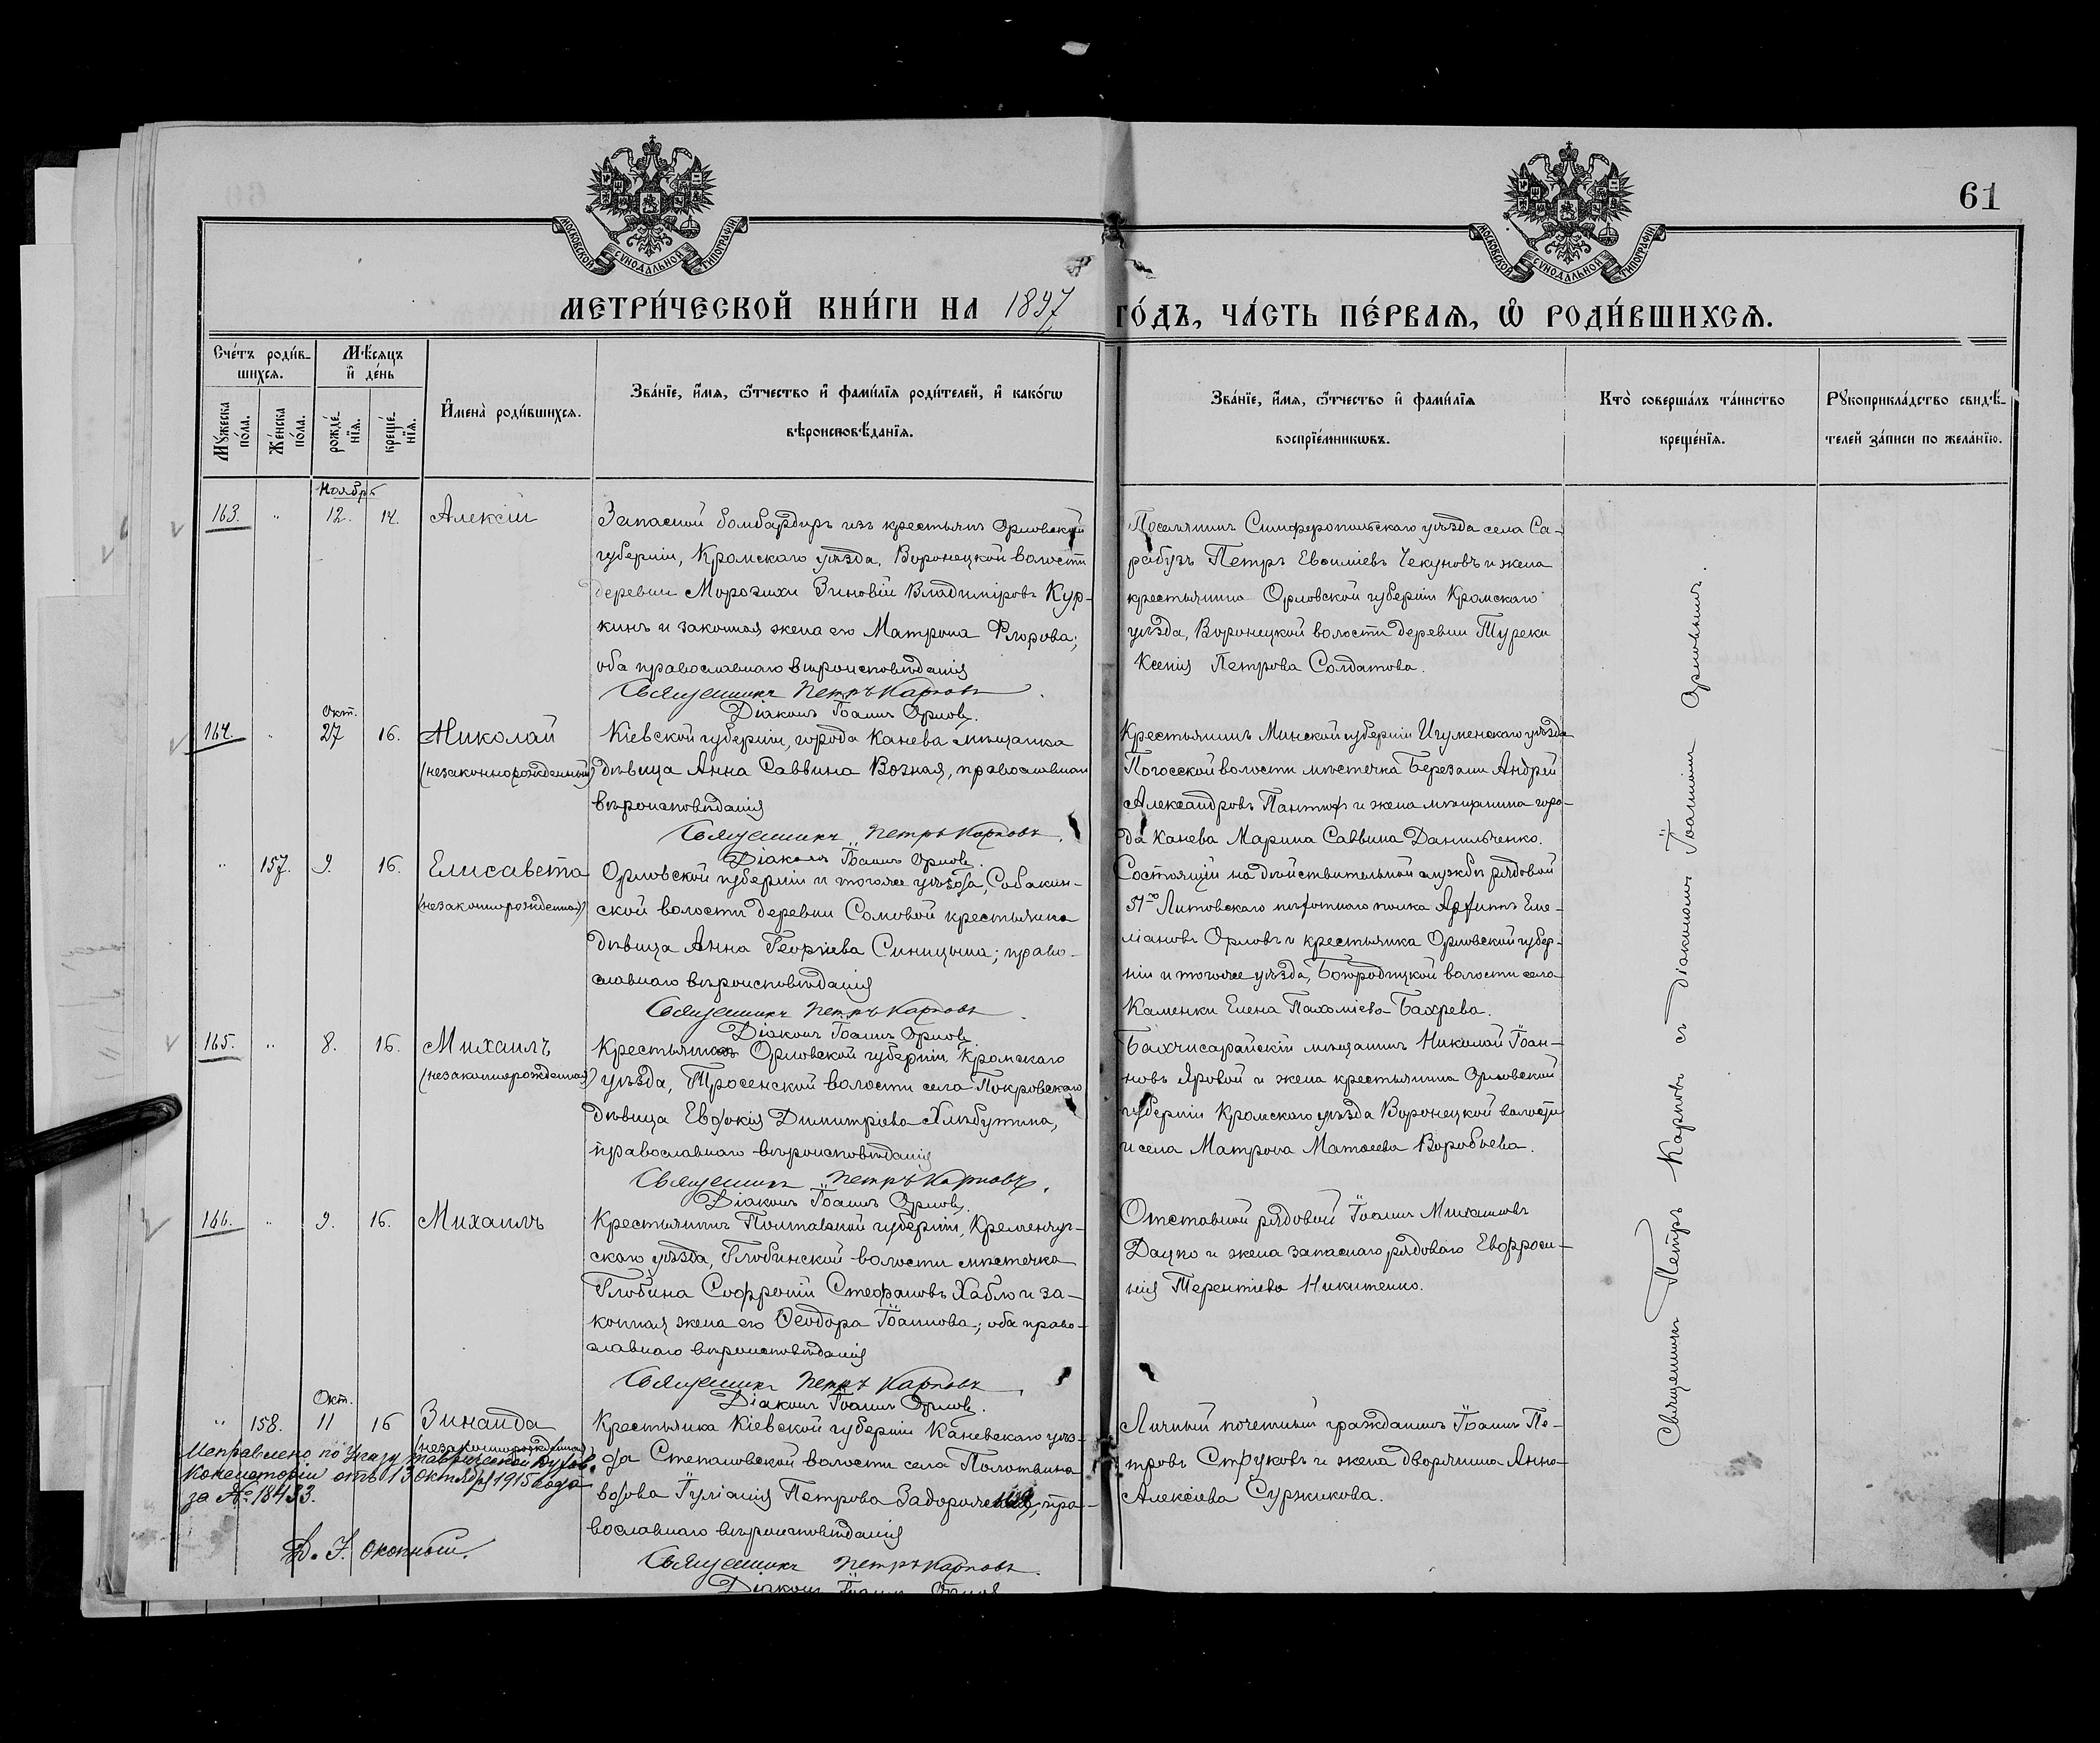 61
МОСКОВСКОЙ СѴНОДАЛЬНОЙ ТИПОГРАФІИ
МОСКОВСКОЙ СѴНОДАЛЬНОЙ ТИПОГРАФІИ
МЕТРИ́ЧЕСКОЙ КНИ́ГИ НА 1897 ГО́ДЪ, ЧА́СТЬ ПЕ́РВАЯ, Ѡ РОДИ́ВШИХСЯ.
Сче́тъ роди́в-
шихся.
Мꙋжеска по́ла.
Же́нска по́ла.
Мѣ́сяцъ
и҆ де́нь
рожде́-
нїя.
креще́-
нїя.
И҆мена̀ роди́вшихся.
Зва́нїе, и҆́мя, ѻ҆́тчество и҆ фами́лїя роди́телей, и҆ како́гѡ
вѣроисповѣ́данїя.
Зва́нїе, и҆́мя, ѻ҆́тчество и҆ фами́лїя
воспрїе́мникѡвъ.
Кто̀ соверша́лъ та́инство
креще́нїя.
Рꙋкоприкла́дство свидѣ́-
телей за́писи по жела́нїю.
Ноябрь
163. " 12. 14. Алексій
Запасной бомбардиръ изъ крестьянъ Орловской
губерніи, Кромскаго уѣзда, Воронецкой волости
деревни Морозихи Зиновій Владиміровъ Кур-
кинъ и законная жена его Матрона Флорова;
оба православнаго вѣроисповѣданія
Священникъ Петръ Карповъ.
Діаконъ Іоаннъ Орловъ.
Поселянинъ Симферопольскаго уѣзда села Са-
рабузъ Петръ Евѳиміевъ Чекуновъ и жена
крестьянина Орловской губерніи Кромскаго
уѣзда, Воронецкой волости деревни Туреки
Ксенія Петрова Солдатова.
Окт.
164. " 27 16. Николай
(незаконнорожденный)
Кіевской губерніи, города Канева мѣщанка
дѣвица Анна Саввина Возная, православнаго
вѣроисповѣданія
Священникъ Петръ Карповъ.
Діаконъ Іоаннъ Орловъ.
Крестьянинъ Минской губерніи Игуменскаго уѣзда
Погосской волости мѣстечка Березани Андрей
Александровъ и жена мѣщанина горо-
да Канева Марина Саввина Данильченко.
" 157. 9. 16. Елисавета
(незаконнорожденная)
Орловской губерніи и тогоже уѣзда, Собакин-
ской волости деревни Сомовой крестьянка
дѣвица Анна Георгіева Синицына; право-
славнаго вѣроисповѣданія
Священникъ Петръ Карповъ.
Діаконъ Іоаннъ Орловъ.
Состоящій на дѣйствительной службѣ рядовой
51го Литовскаго пѣхотнаго полка Архипъ Еме-
ліановъ Орловъ и крестьянка Орловской губер-
ніи и тогоже уѣзда, Богородицкой волости села
Каменки Елена Пахоміева Бахрева.
165. " 8. 16. Михаилъ
(незаконнорожденный)
Крестьянка Орловской губерніи Кромскаго
уѣзда, Тросенской волости села Покровскаго
дѣвица Евдокія Димитріева Хлѣбутина,
православнаго вѣроисповѣданія
Священникъ Петръ Карповъ.
Діаконъ Іоаннъ Орловъ.
Бахчисарайскій мѣщанинъ Николай Іоан-
новъ Яровой и жена крестьянина Орловской
губерніи Кромскаго уѣзда Воронецкой волости
и села Матрона Матѳеева Воробьева.
166. " 9. 16. Михаилъ
Крестьянинъ Полтавской губерніи, Кременчуг-
скаго уѣзда, Глобинской волости мѣстечка
Глобина Софроній Стефановъ Хабло и за-
конная жена его Ѳеодора Іоаннова; оба право-
славнаго вѣроисповѣданія
Священникъ Петръ Карповъ.
Діаконъ Іоаннъ Орловъ.
Отставной рядовой Іоаннъ Михаиловъ
Дацко и жена запаснаго рядоваго Евфроси-
нія Терентіева Никитенко.
Окт.
" 158. 11 16 Зинаида
(незаконнорожденная)
Крестьянка Кіевской губерніи Каневскаго уѣз-
да Степановской волости села Полствина
вдова Гуліанія Петрова Задорожная, пра-
вославнаго вѣроисповѣданія
Священникъ Петръ Карповъ.
Діаконъ Іоаннъ Орловъ
Личный почетный гражданинъ Іоаннъ Пе-
тровъ Струковъ и жена дворянина Анна
Алексіева Суржикова.
Исправлено по Указу Таврической Духов.
Консисторіи отъ 13 октября 1915 года
за № 18433.
Священникъ Петръ Карповъ съ діакономъ Іоанномъ Орловымъ.